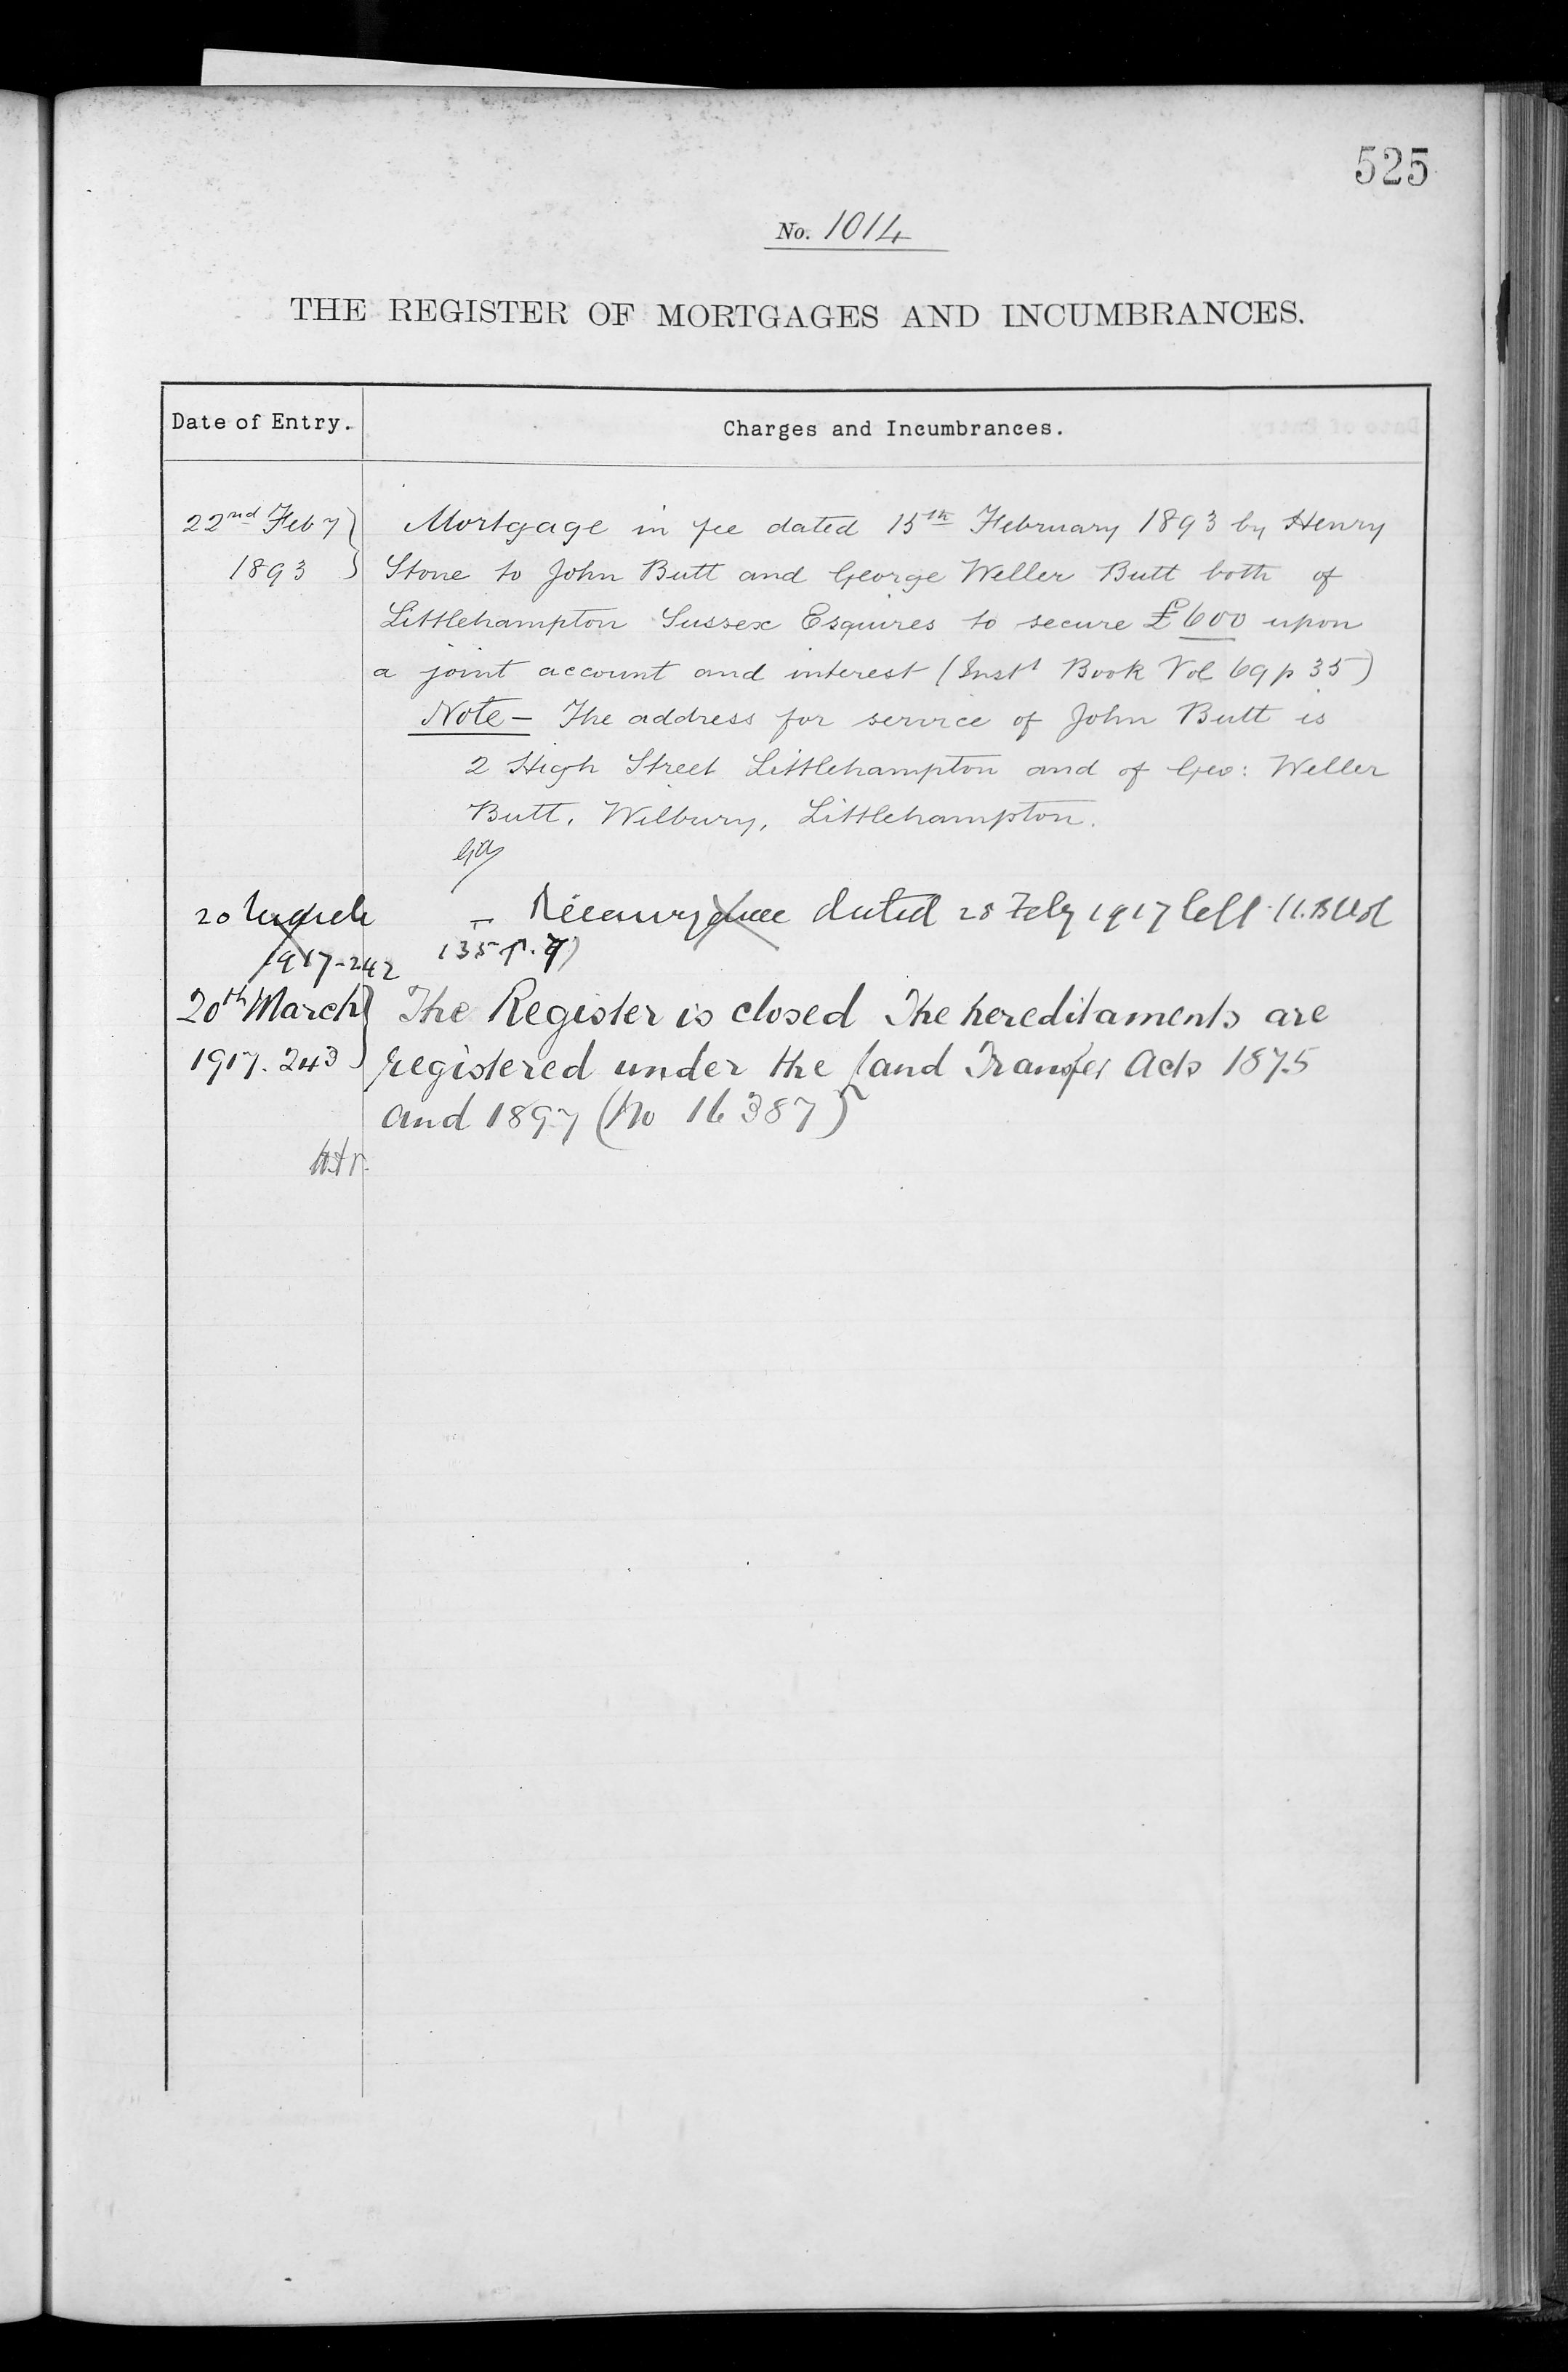 525
No. 1014
THE REGISTER OF MORTGAGES AND INCUMBRANCES.
Date of Entry. Charges and Incumbrances.
22nd Feby 1893 Mortgage in fee dated 15th February 1893 by Henry
Stone to John Butt and George Weller Butt both of
Littlehampton Sussex Esquires to secure £600 upon
a joint account and interest (Inst Book Vol 69 p 35)
Note - The address for service of John Butt is
2 High Street Littlehampton and of Geo: Weller
Butt, Wilbury, Littlehampton.
20 March 1917-242 - dated 28 Feby 1917 left (I.B Vol
135 p. 7)
20th March 1917. 243 The Register is closed The hereditaments are
registered under the Land Transfer Acts 1875
and 1897 (No 16387)